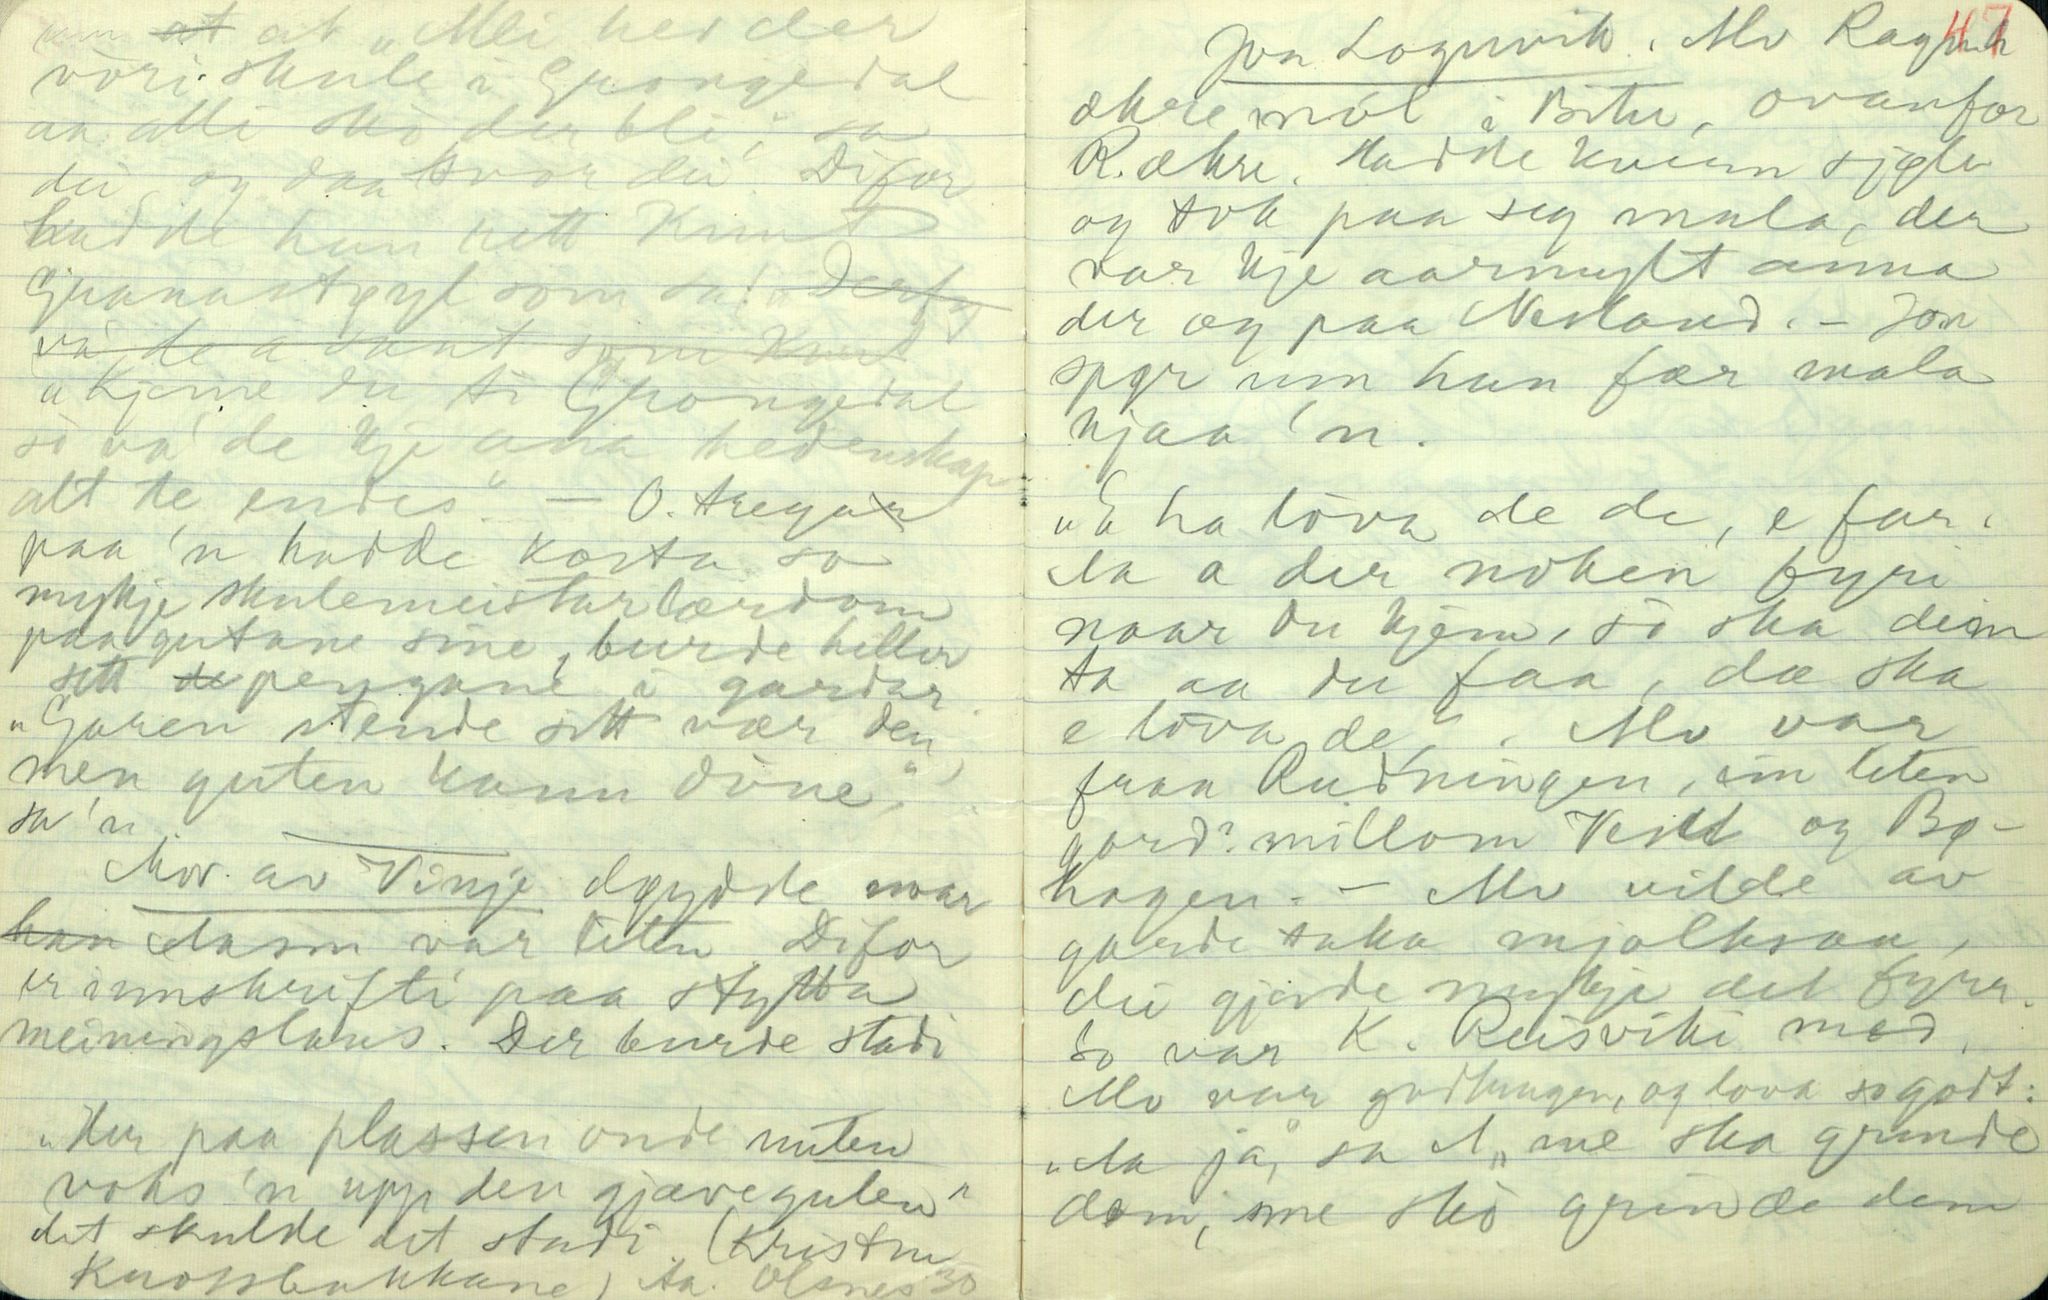 at at "Mei hev der
vori skule i Grongedal
aa alli sko der bli", sa
dei, og daa tvor dei. Difor
hadde han rett Knut
Granastøyl som sa: "Derfy
va' de a sant som Knut
"Kjeme du ti Grongedal
so va' de kje ana hedenskap
alt te endes" – O. tregar
paa 'n hadde kosta so
mykje skulemeistarlærdom
paa gutane sine, burde heller
sett de pengane i gardar.
"Garen stende sitt vær den,
men guten kann døine",
sa 'n.
Mor av Vinje døydde naar
han Aasm var liten. Difor
er innskrifti paa stytta
meiningslaus. Der burde stadi
"Her paa plassen onde nuten
voks 'n upp den gjæveguten"
det skulde det stadi. (Kristen
Knossbakkane) Aa. Olsnes 30
47
Jon Loguvik. Mo Ragnh
ækre mol i Bitu, ovanfor
R. ækre. Hadde kvenn sjølv
og tok paa seg mala, der
var kje aarmylt anna
der og paa Nesland. – Jon
spør um han fær mala
hjaa 'n.
"E ha lova de de, e far,
Aa a der noken fyri
naar du kjem, so ska deim
ta aa du faa, dæ ska
e lova de". Mo var
fraa Rudningen, ein liten
gard? millom Vesll og Bø-
hagen. – Mo vilde av
garde taka mjølksaa,
dei gjorde mykje det fyrr.
So var K. Reisviki med.
Mo var godhugen, og lova so godt:
"Aa ja", sa M, "me ska grinde
dom, me sko grinde dem